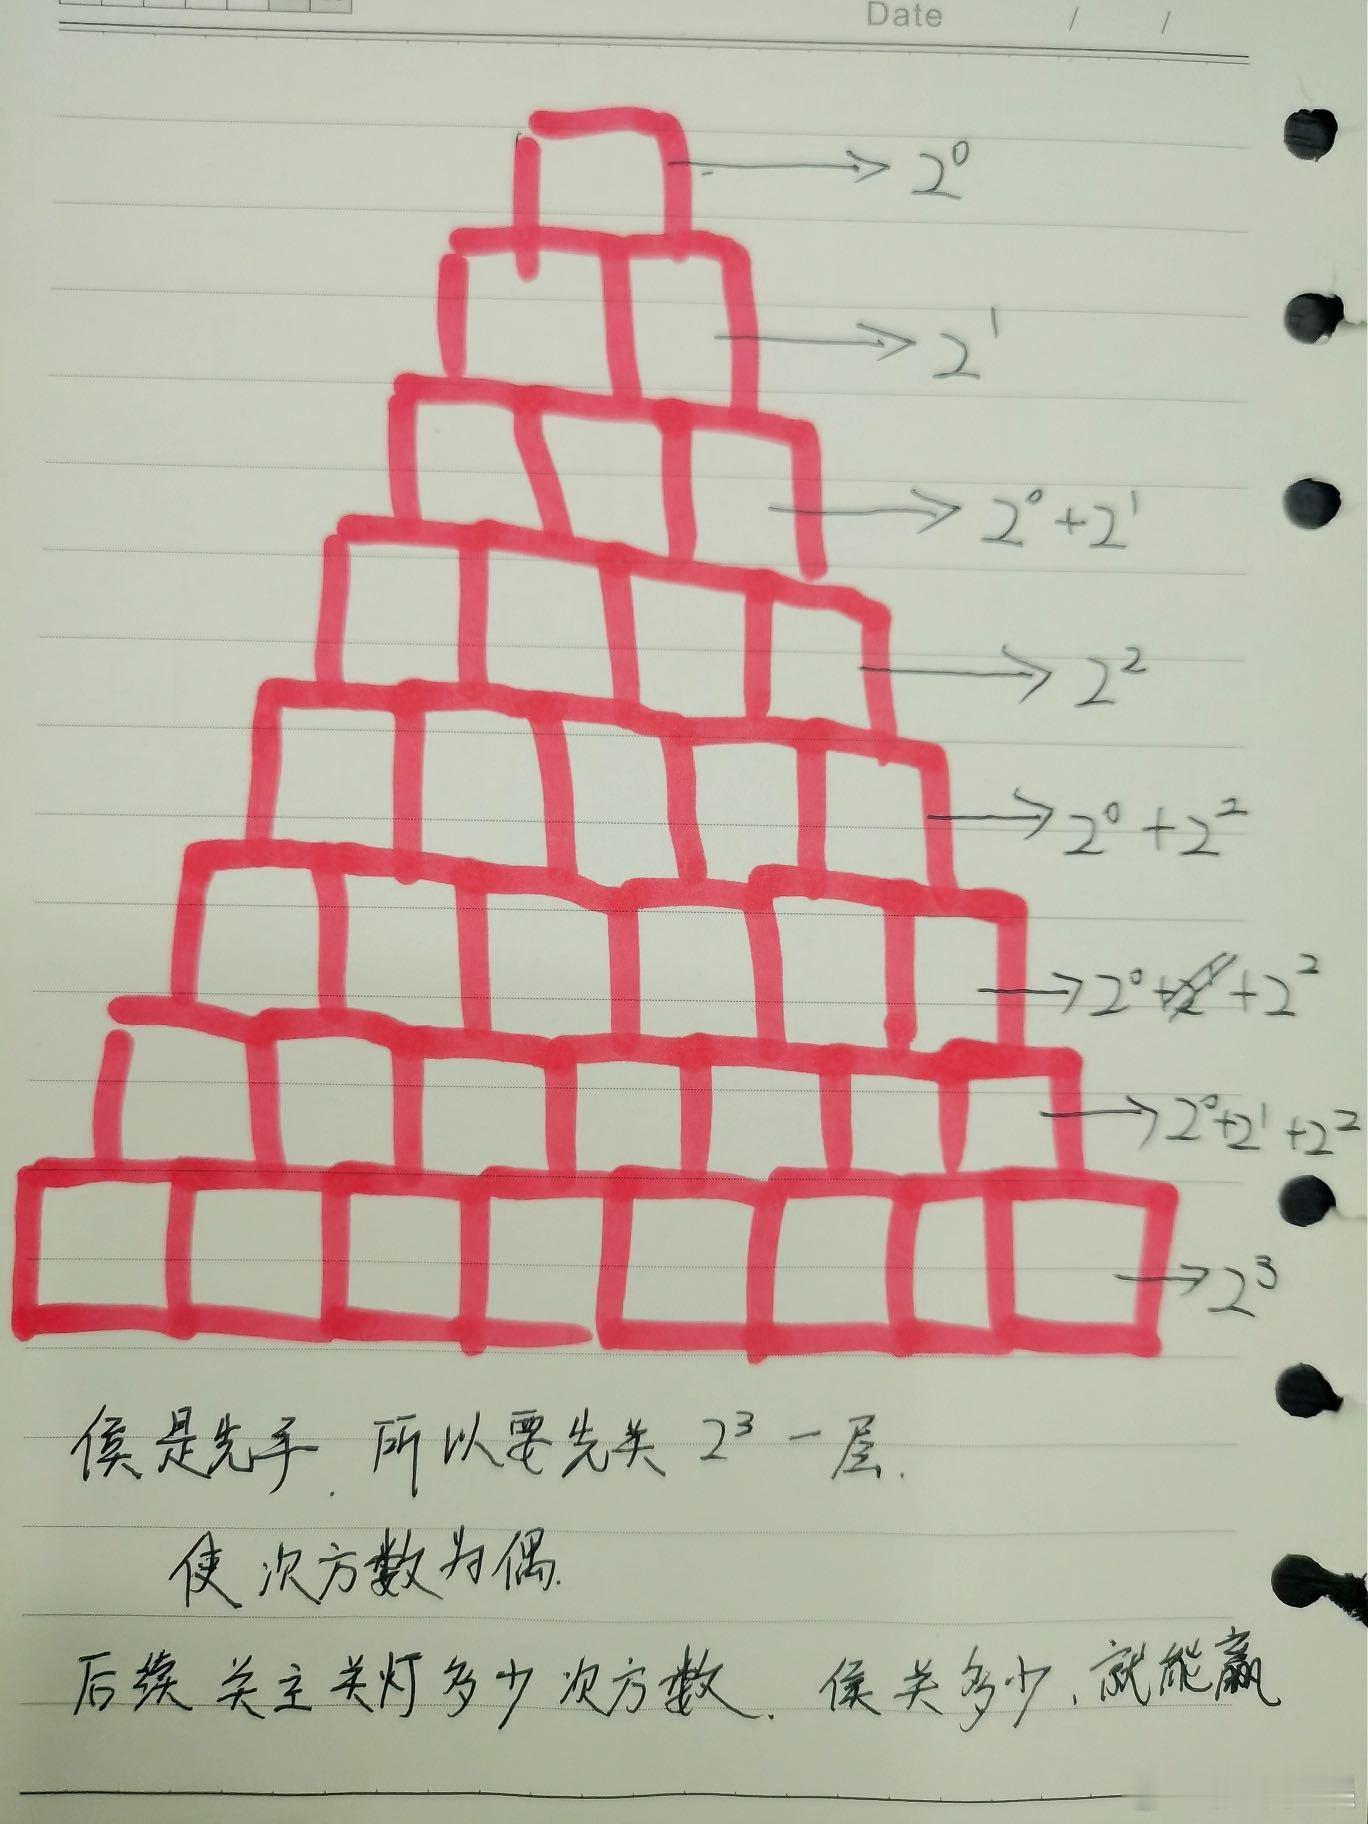 Date / /
→ 2⁰
→ 2¹
→ 2⁰+2¹
→ 2²
→ 2⁰+2²
→ 2⁰+2²
→ 2⁰+2¹+2²
→ 2³
侯是先手.所以要先关 2³ 一层.
使次方数为偶.
后续关主关灯多少次方数.侯关多少,就能赢